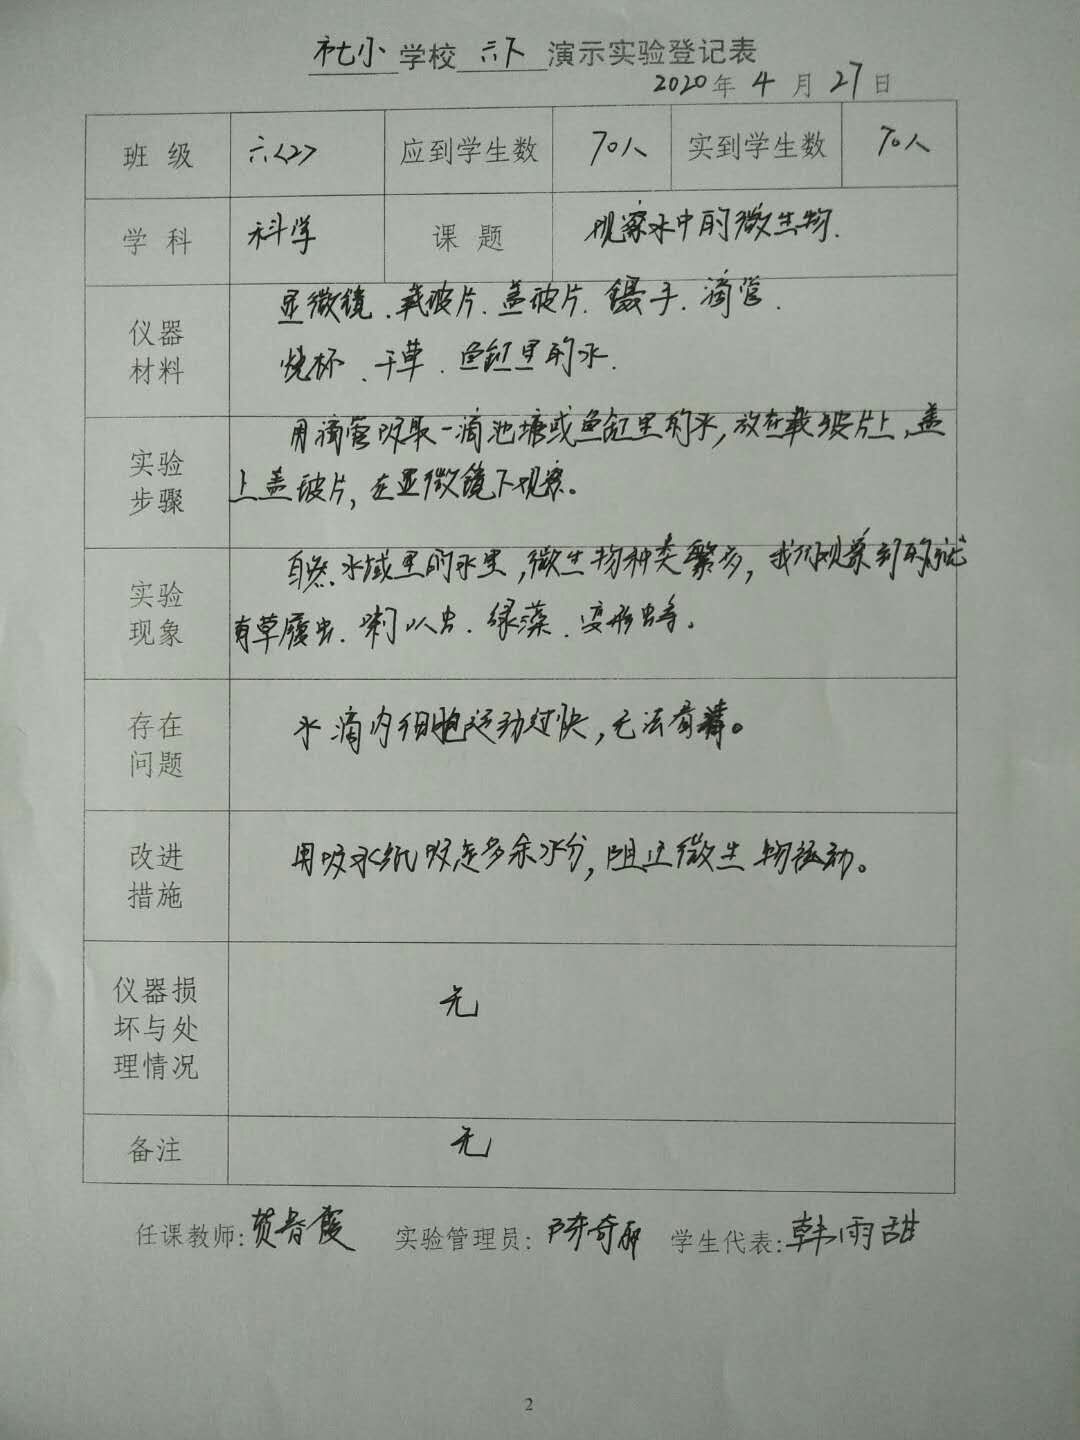 小学校 六下 演示实验登记表
2020年 4 月 27 日
班 级 六<2> 应到学生数 70人 实到学生数 70人
学 科 科学 课 题 观察水中的微生物.
仪器
材料
显微镜、载玻片、盖玻片、镊子、滴管、
烧杯、干草、鱼缸里的水.
实验
步骤
用滴管吸取一滴池塘或鱼缸里的水,放在载玻片上,盖
上盖玻片,在显微镜下观察。
实验
现象
自然水域里的水里,微生物种类繁多,我们观察到的就
有草履虫、喇叭虫、绿藻、变形虫等。
存在
问题
水滴内细胞运动过快,无法看清。
改进
措施
用吸水纸吸走多余水分,阻止微生物运动。
仪器损
坏与处
理情况
无
备注 无
任课教师:贺春霞 实验管理员:陈奇 学生代表:韩雨甜
2